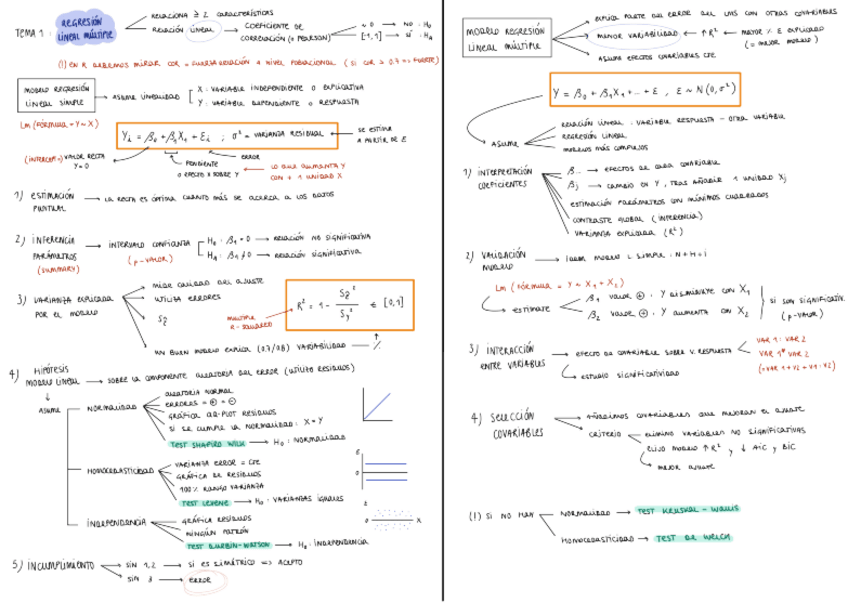 TEMA 1: REGRESIÓN LINEAL MÚLTIPLE
RELACIONA ≥ 2 CARACTERÍSTICAS
RELACIÓN LINEAL → COEFICIENTE DE CORRELACIÓN (O PEARSON)
≈ 0 → NO : H₀
[1,1] → SÍ : Hₐ
(1) EN R DEBEMOS MIRAR COR = FUERZA RELACIÓN A NIVEL POBLACIONAL (SI COR > 0.7 => FUERTE)
MODELO REGRESIÓN LINEAL SIMPLE → ASUME LINEALIDAD
X : VARIABLE INDEPENDIENTE O EXPLICATIVA
Y : VARIABLE DEPENDIENTE O RESPUESTA
Lm (FÓRMULA = Y ~ X)
Yᵢ = β₀ + β₁X₁ + Eᵢ ; σ² = VARIANZA RESIDUAL → SE ESTIMA A PARTIR DE E
(INTERCEPT) VALOR RECTA Y=0
PENDIENTE O EFECTO X SOBRE Y
ERROR
LO QUE AUMENTA Y CON + 1 UNIDAD X
1) ESTIMACIÓN PUNTUAL → LA RECTA ES ÓPTIMA CUANTO MÁS SE ACERCA A LOS DATOS
2) INFERENCIA PARÁMETROS (SUMMARY) → INTERVALO CONFIANZA (p-VALOR)
H₀ : β₁ = 0 → RELACIÓN NO SIGNIFICATIVA
Hₐ : β₁ ≠ 0 → RELACIÓN SIGNIFICATIVA
3) VARIANZA EXPLICADA POR EL MODELO
MIDE CALIDAD DEL AJUSTE
UTILIZA ERRORES
MULTIPLE R-SQUARED
R² = 1 - ∈ [0,1]
UN BUEN MODELO EXPLICA (0.7/0.8) VARIABILIDAD → %
4) HIPÓTESIS MODELO LINEAL → SOBRE LA COMPONENTE ALEATORIA DEL ERROR (UTILIZO RESIDUOS)
ASUME
NORMALIDAD
ALEATORIA NORMAL
ERRORES = ⊕ = ⊖
GRÁFICA QQ-PLOT RESIDUOS
SI SE CUMPLE LA NORMALIDAD : X = Y
TEST SHAPIRO WILK → H₀ : NORMALIDAD
HOMOCEDASTICIDAD
VARIANZA ERROR = CTE
GRÁFICA DE RESIDUOS
100% RANGO VARIANZA
TEST LEVENE → H₀ : VARIANZAS IGUALES
E
0
INDEPENDENCIA
GRÁFICA RESIDUOS
NINGÚN PATRÓN
TEST DURBIN-WATSON → H₀ : INDEPENDENCIA
0
X
5) INCUMPLIMIENTO
SIN 1,2 → SI ES SIMÉTRICO => ACEPTO
SIN 3 → ERROR
MODELO REGRESIÓN LINEAL MÚLTIPLE
EXPLICA PARTE DEL ERROR DEL LMS CON OTRAS COVARIABLES
MENOR VARIABILIDAD ← ↑R² ← MAYOR % E EXPLICADO (= MEJOR MODELO)
ASUME EFECTOS COVARIABLES CTE
Y = β₀ + β₁X₁ + … + E , E ~ N(0,σ²)
ASUME
RELACIÓN LINEAL : VARIABLE RESPUESTA - OTRA VARIABLE
REGRESIÓN LINEAL
MODELOS MÁS COMPLEJOS
1) INTERPRETACIÓN COEFICIENTES
β… → EFECTOS DE CADA COVARIABLE
βj → CAMBIO EN Y, TRAS AÑADIR 1 UNIDAD Xj
ESTIMACIÓN PARÁMETROS CON MÍNIMOS CUADRADOS
CONTRASTE GLOBAL (INFERENCIA)
VARIANZA EXPLICADA (R²)
2) VALIDACIÓN MODELO → IDEM MODELO L SIMPLE : N+H+I
Lm (FÓRMULA = Y ~ X₁ + X₂)
ESTIMATE
β₁ VALOR ⊖, Y DISMINUYE CON X₁
β₂ VALOR ⊕, Y AUMENTA CON X₂
SI SON SIGNIFICATIV. (p-VALOR)
3) INTERACCIÓN ENTRE VARIABLES → EFECTO DE COVARIABLE SOBRE V. RESPUESTA
VAR 1 : VAR 2
VAR 1 * VAR 2
(= VAR 1 + V2 + V1:V2)
ESTUDIO SIGNIFICATIVIDAD
4) SELECCIÓN COVARIABLES
AÑADIMOS COVARIABLES QUE MEJORAN EL AJUSTE
CRITERIO
ELIMINO VARIABLES NO SIGNIFICATIVAS
ELIJO MODELO ↑R² y ↓ AIC y BIC
MEJOR AJUSTE
(1) SI NO HAY
NORMALIDAD → TEST KRUSKAL-WALLIS
HOMOCEDASTICIDAD → TEST DE WELCH